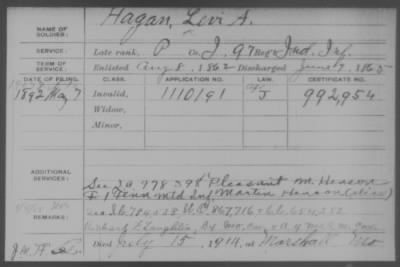 NAME OF SOLDIER: Hagan, Levi A.
SERVICE: Late rank, P Co. I, 97 Reg't Ind. Inf.
TERM OF SERVICE: Enlisted Aug 8, 1862 Discharged June 7, 1865
DATE OF FILING. CLASS. APPLICATION NO. LAW. CERTIFICATE NO.
1892 May 7 Invalid, 1110191 J 992,954
Widow,
Minor,
ADDITIONAL SERVICES:
See Io 778398 Pleasant M. Henson
F 1 Tenn Mtd Inf Martin Henson (alias)
REMARKS:
Died July 15, 1914, at Marshall Mo